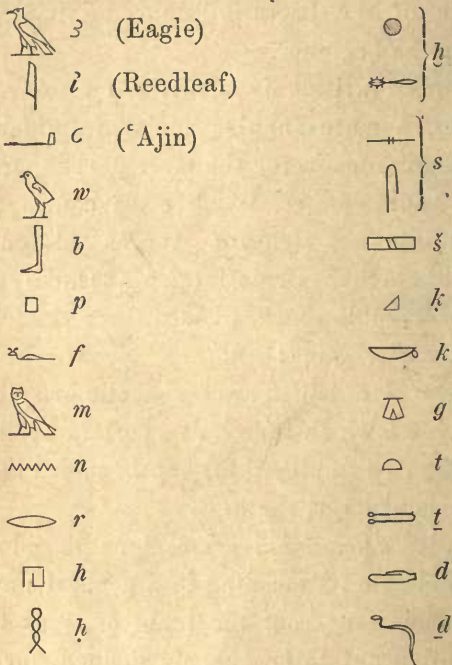 ꜣ (Eagle)
ἰ (Reedleaf)
ꜥ (ʿAjin)
w
b
p
f
m
n
r
h
ḥ
ḫ
s
š
ḳ
k
g
t
ṯ
d
ḏ